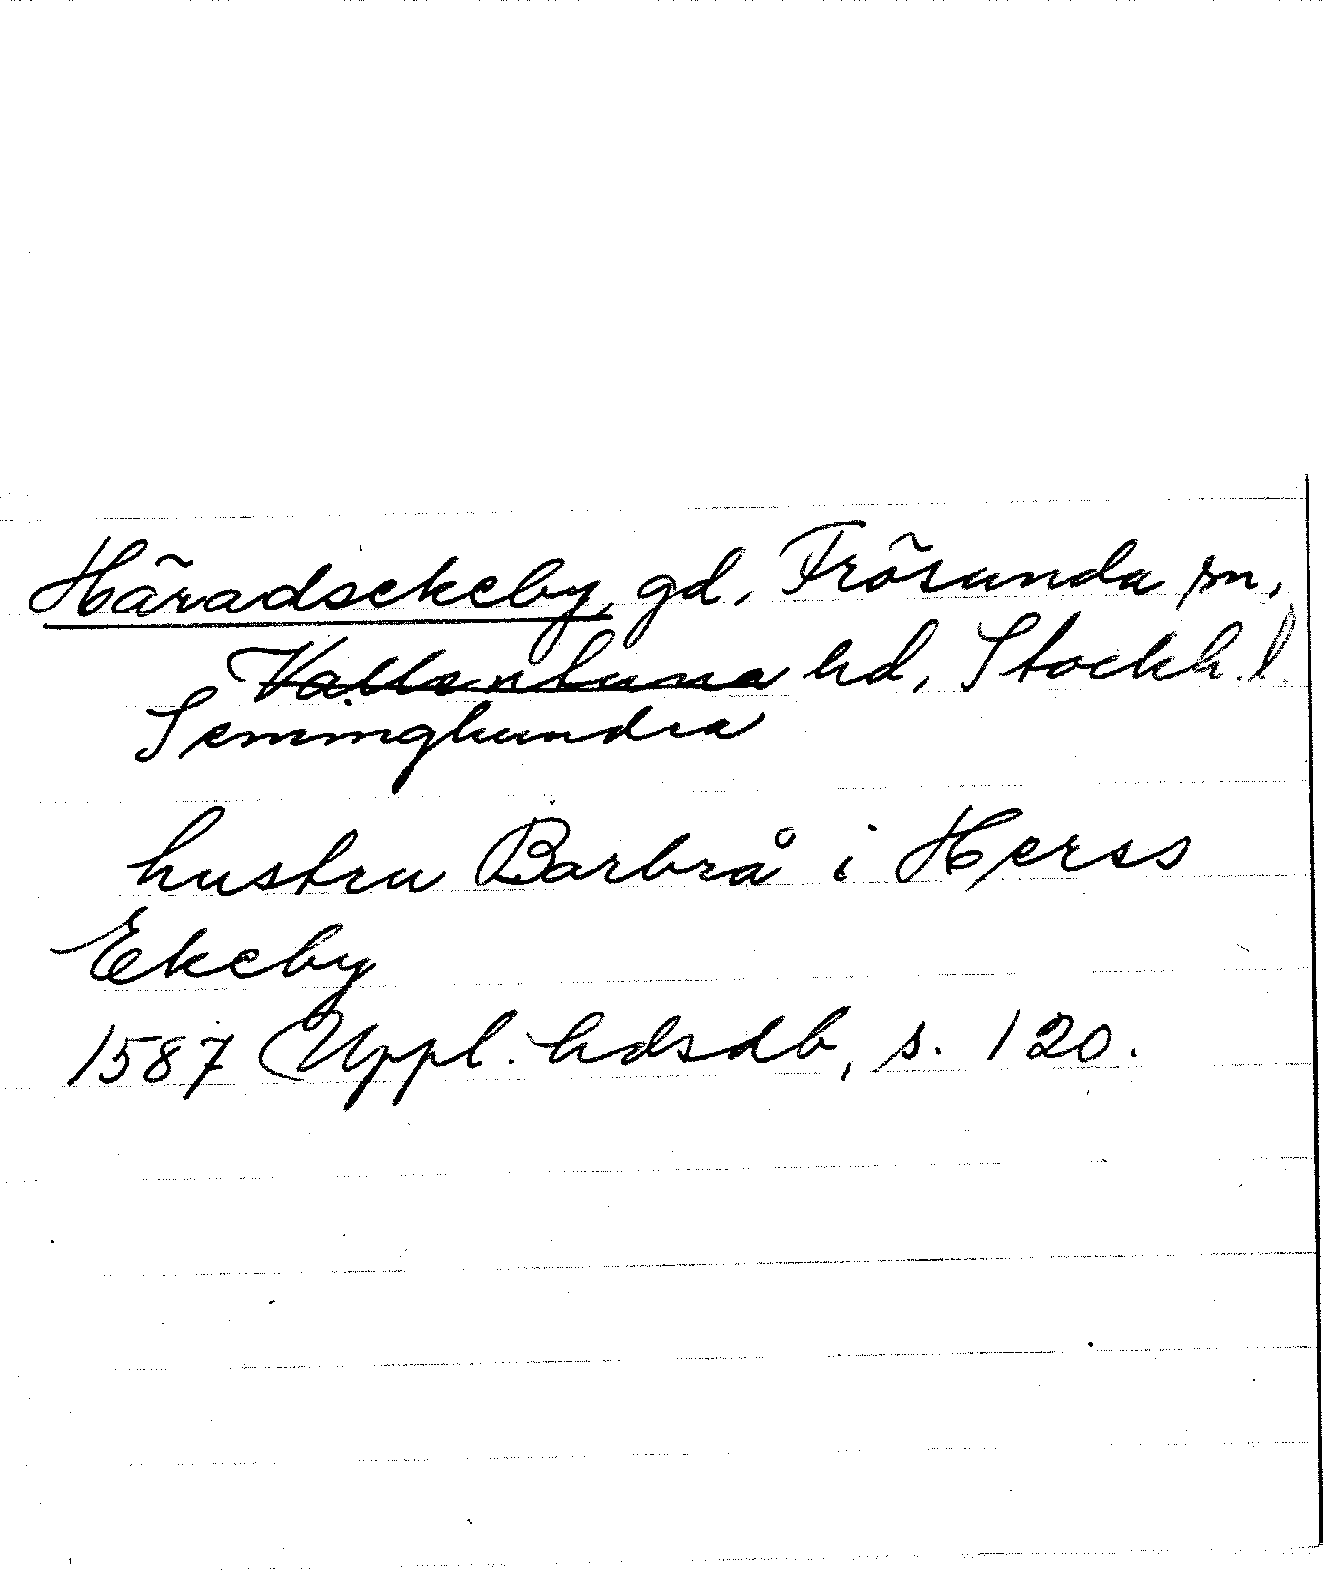 Häradsekeby, gd, Frösunda sn,
Vallentuna hd, Stockh. l
Seminghundra
hustru Barbrå i Herss
Ekeby
1587 Uppl. hdsdb, s. 120.